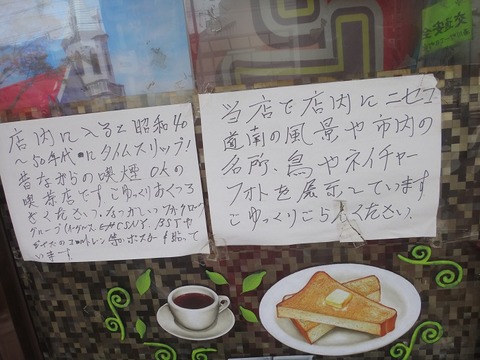 店内に入ると昭和40
~50年代にタイムスリップ!
昔ながらの喫煙OKの
喫茶店です ごゆっくりおくつろ
ぎください。なつかしい
グループ
等の ポスターも貼って
います!
当店で店内にニセコ
道南の風景や市内の
名所、鳥やネイチャー
フォトを展示しています
ごゆっくりごらんください。